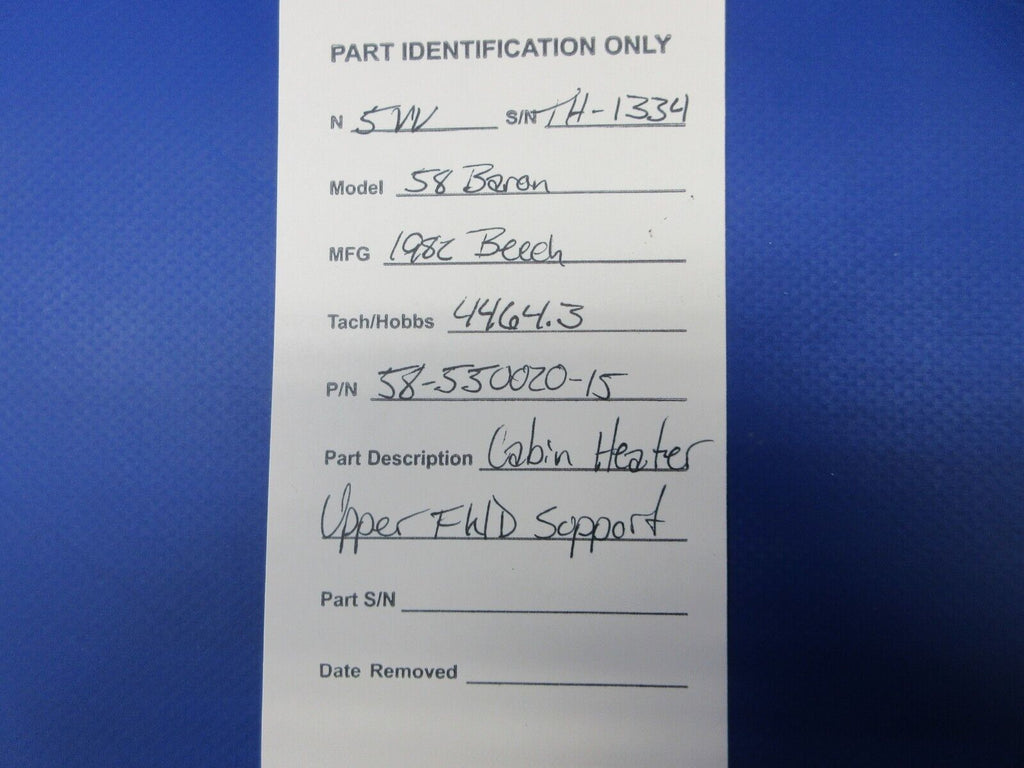 PART IDENTIFICATION ONLY
N 5VV S/N TH-1334
Model 58 Baron
MFG 1982 Beech
Tach/Hobbs 4464.3
P/N 58-550020-15
Part Description Cabin Heater
Upper FWD Support
Part S/N
Date Removed